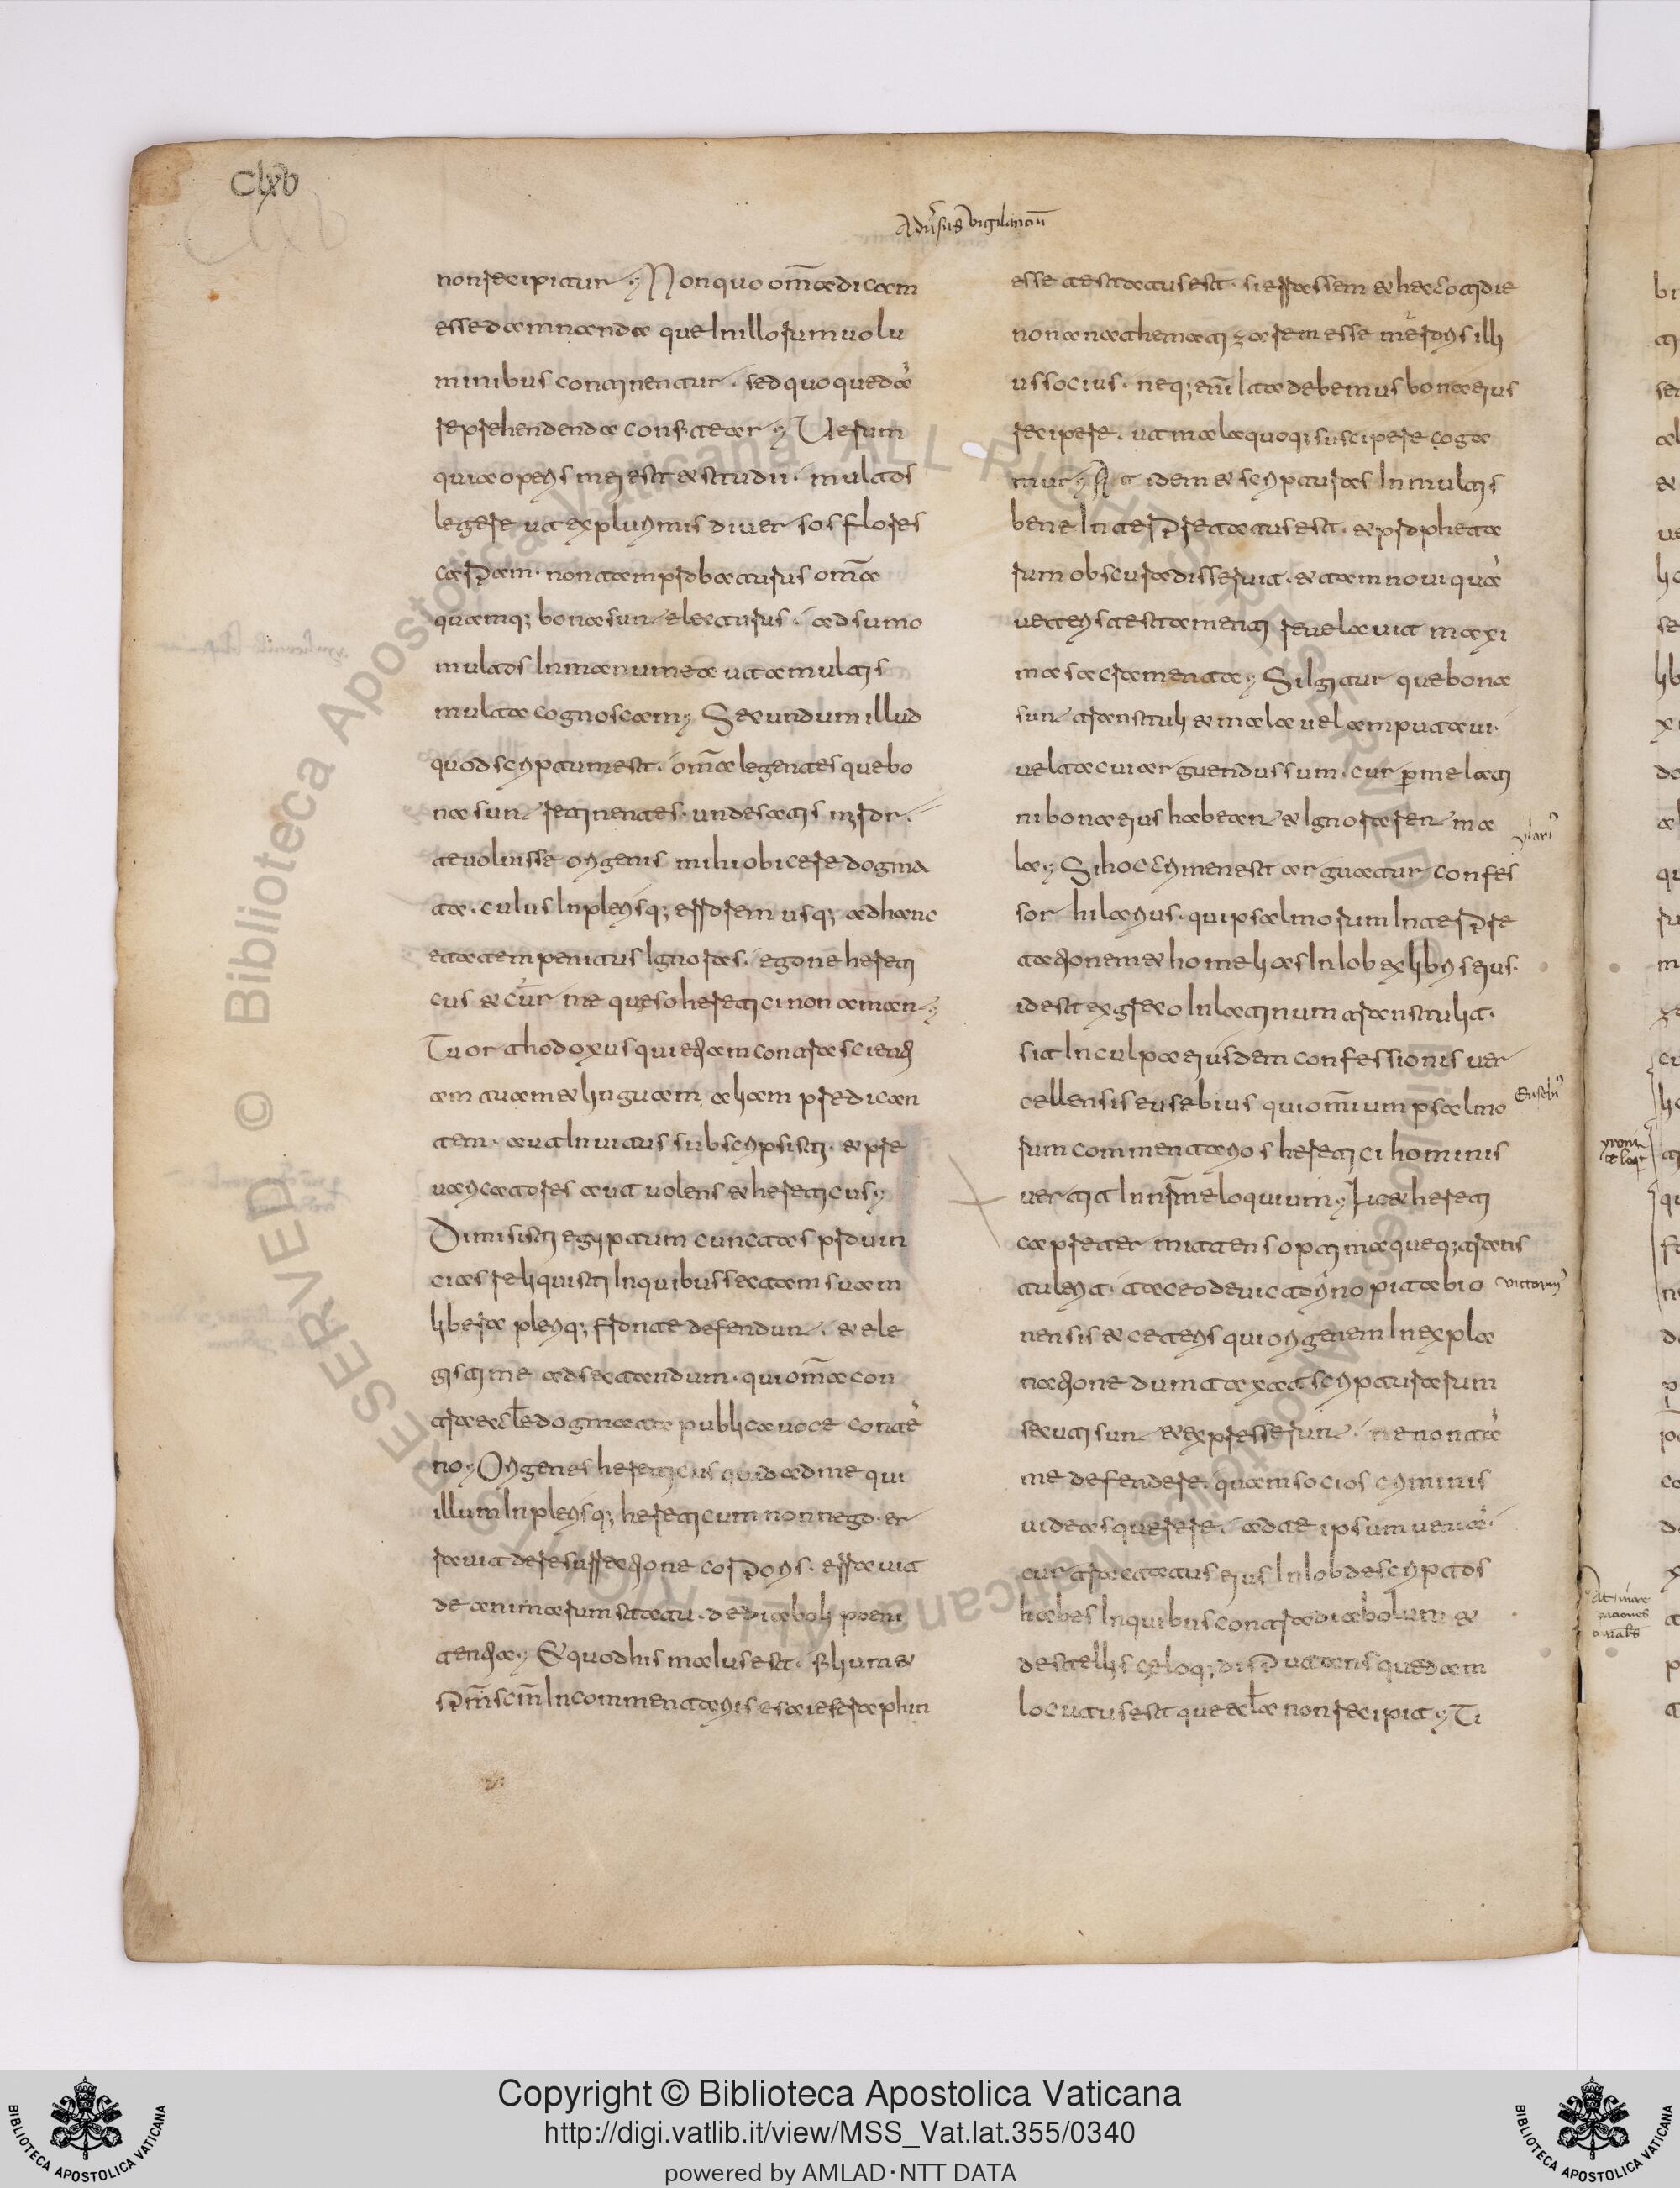 Clxv
Adusus vigilanciu
non recipitur. Non quo oma dicam
esse damnanda que in illorum volu
minibus continentur. sed quo queda
reprehendenda confitear. Verum
quia operis mei est et studii. multos
legere ut ex plurimis diversos flores
carpam. non tam probaturus oma
quamq; bona sunt electurus. adsumo
multos in manu mea ut a multis
multa cognoscam. Secundum illud
quod scriptum est. oma legentes que bo
na sunt retinentes. unde satis miror.
te voluisse origenis mihi obicere dogma
ta. cuius in plerisq; errorem usq; ad hanc
etatem penitus ignoras. egone hereti
cus et cur me queso heretici non amant
Tu orthodoxus qui etiam contra scienti
am tuam et linguam aliam predican
tem. aut invitus subscripsisti. et pre
varicatores aut volens et hereticus.
Dimisisti egyptum cunctas provin
cias reliquisti in quibus sectam suam
libera pleriq; fronte defendunt. et ele
gisti me ad sectandum. qui oma con
tra ecle dogmata publica voce conte
no. Origenes hereticus quid ad me qui
illum in plerisq; hereticum non nego. er
ravit de resurrectione corporis. erravit
de animarum statu. de diaboli peni
tentia. Et quod his malus est. filium et
spm scm in commentariis esaie seraphin
esse testatus est. si errassem et hec cotidie
non anathematizarem esse mererer illi
us socius. neq; eni ita debemus bona eius
recipere. ut mala quoq; suscipere coga
mur. At idem et scripturas in multis
bene interpretatus est. et propheta
rum obscura disseruit. et tam novi qua
veteris testamenti revelavit maxi
ma sacramenta. Si igitur que bona
sunt transtuli et mala vel amputavi.
vel tacui arguendus sum. cur p me lati
ni bona eius habeant et ignorarent ma
la. Si hoc crimen est arguatur confes
sor hilarius. qui psalmorum interpre
tationem et homelias in iob ex libris eius.
id est ex greco in latinum transtulit.
sit in culpa eiusdem confessionis ver
cellensis eusebius qui omium psalmo
rum commentarios heretici hominis
vertit in nrm eloquium. licet hereti
ca preter mittens optima queq; trans
tulerit. taceo de victorino pitabio
nensis et ceteris qui origenem in expla
natione dumtaxat scripturarum
secuti sunt et expresserunt. ne non ta
me defendere. quam socios criminis
videas querere. ad te ipsum venia.
cur tractatus eius in iob descriptos
habes in quibus contra diabolum et
de stellis celoq; disputans quedam
locutus est que ecla non recipit. Ti
Eusebi
victorin
Copyright © Biblioteca Apostolica Vaticana
http://digi.vatlib.it/view/MSS_Vat.lat.355/0340
powered by AMLAD·NTT DATA